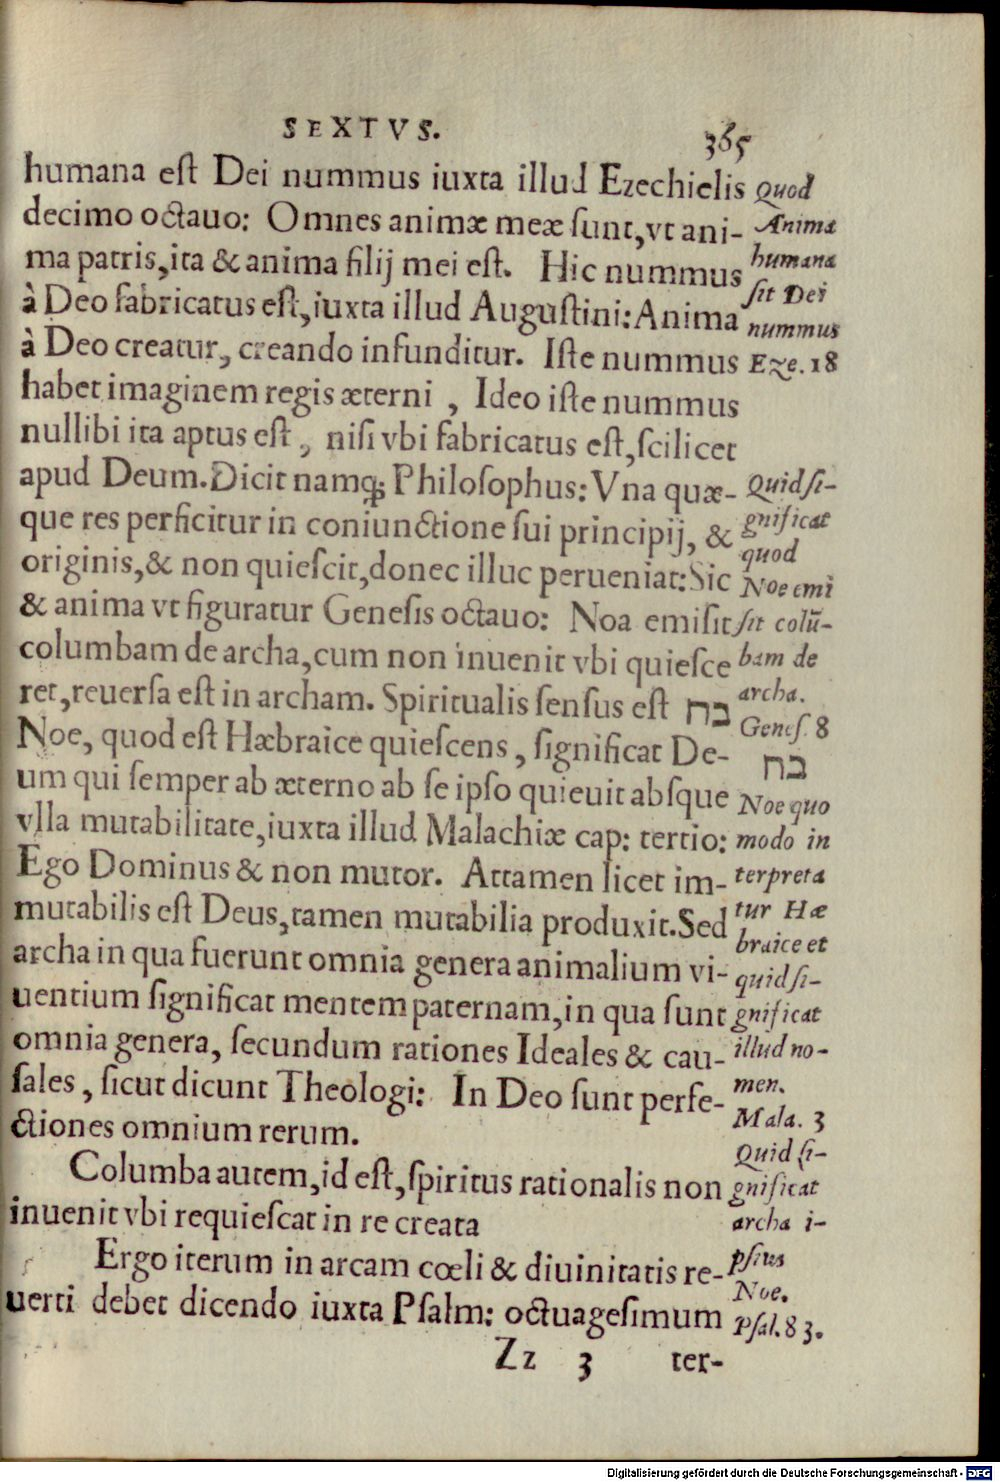 SEXTVS. 365
humana eſt Dei nummus iuxta illud Ezechielis
decimo octauo: Omnes animæ meæ ſunt, vt ani-
ma patris, ita & anima filij mei eſt. Hic nummus
à Deo fabricatus eſt, iuxta illud Auguſtini: Anima
à Deo creatur, creando infunditur. Iſte nummus
habet imaginem regis æterni, Ideo iſte nummus
nullibi ita aptus eſt, niſi vbi fabricatus eſt, ſcilicet
apud Deum. Dicit namq; Philoſophus: Vna quæ-
que res perficitur in coniunctione ſui principij, &
originis, & non quieſcit, donec illuc perueniat: Sic
& anima vt figuratur Geneſis octauo: Noa emiſit
columbam de archa, cum non inuenit vbi quieſce
ret, reuerſa eſt in archam. Spiritualis ſenſus eſt נח
Noe, quod eſt Hæbraice quieſcens, ſignificat De-
um qui ſemper ab æterno ab ſe ipſo quieuit absque
vlla mutabilitate, iuxta illud Malachiæ cap: tertio:
Ego Dominus & non mutor. Attamen licet im-
mutabilis eſt Deus, tamen mutabilia produxit. Sed
archa in qua fuerunt omnia genera animalium vi-
uentium ſignificat mentem paternam, in qua ſunt
omnia genera, ſecundum rationes Ideales & cau-
ſales, ſicut dicunt Theologi: In Deo ſunt perfe-
ctiones omnium rerum.
Columba autem, id eſt, ſpiritus rationalis non
inuenit vbi requieſcat in re creata
Ergo iterum in arcam cœli & diuinitatis re-
uerti debet dicendo iuxta Pſalm: octuageſimum
Zz 3 ter-
Quod
Anima
humana
ſit Dei
nummus
Eze. 18
Quid ſi-
gnificat
quod
Noe emi
ſit colũ-
bam de
archa.
Geneſ. 8
נח
Noe quo
modo in
terpreta
tur Hæ
braice et
quid ſi-
gnificat
illud no-
men.
Mala. 3
Quid ſi-
gnificat
archa i-
pſius
Noe.
Pſal. 83.
Digitalisierung gefördert durch die Deutsche Forschungsgemeinschaft - DFG